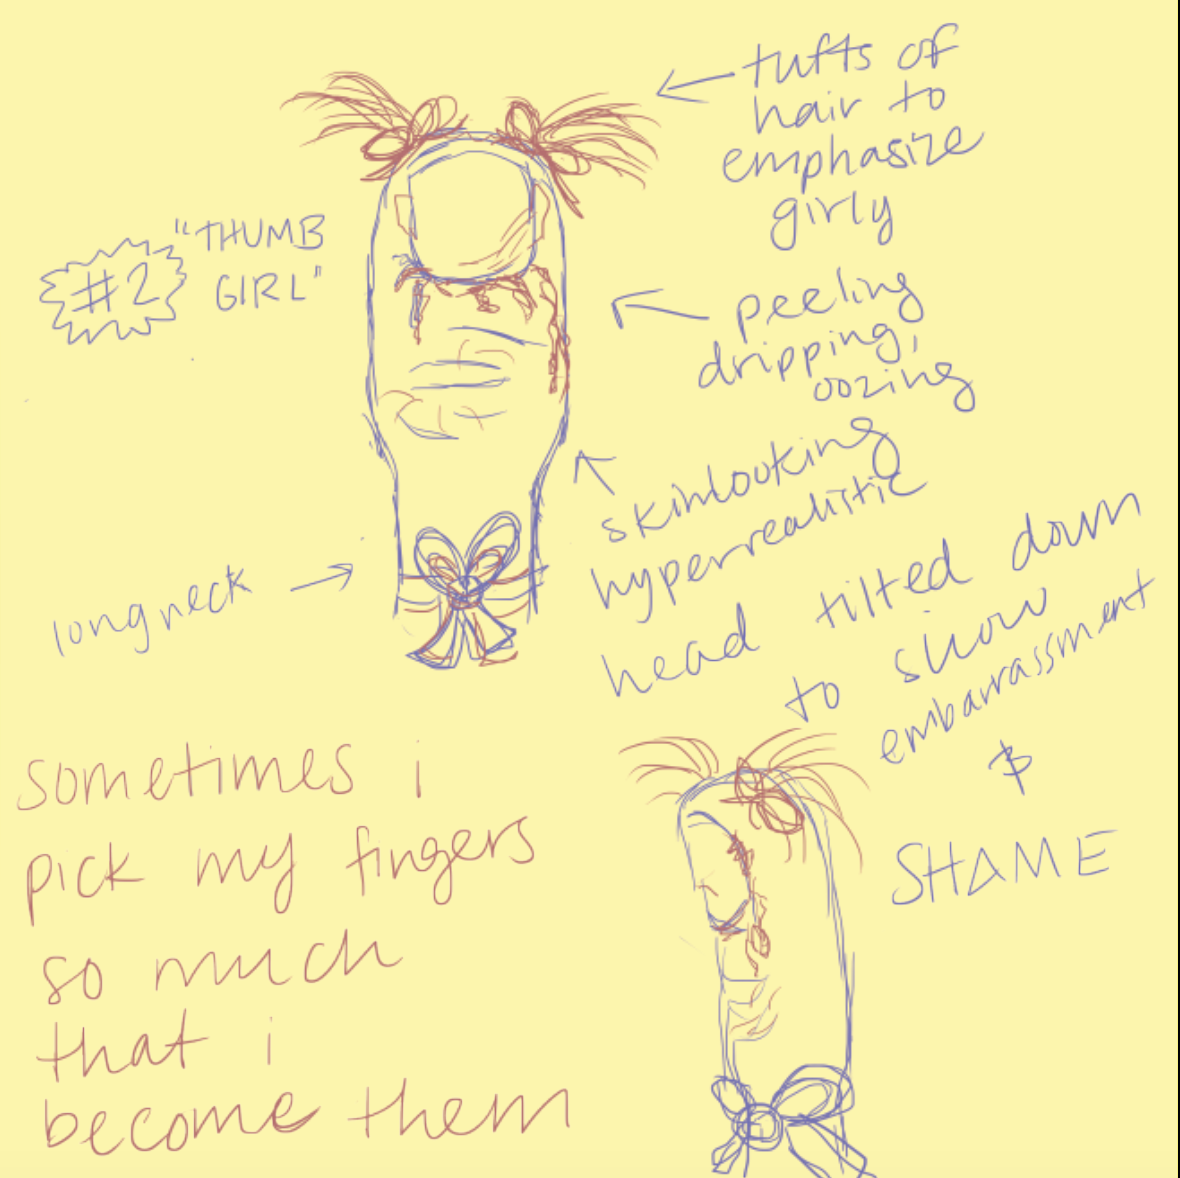 tufts of
hair to
emphasize
girly
#2
"THUMB
GIRL"
peeling
dripping,
oozing
skinlooking
hyperrealistic
long neck
head tilted down
to show
embarrassment
&
SHAME
sometimes i
pick my fingers
so much
that i
become them